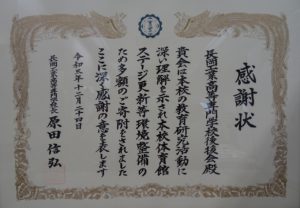 感謝状
長岡工業高等専門学校後援会殿
貴会は本校の教育研究活動に
深い理解を示され本校体育館
ステージ更新等環境整備の
ため多額のご寄附をされました
ここに深く感謝の意を表します
令和 年十二月二十四日
長岡工業高等専門学校長
原田信弘